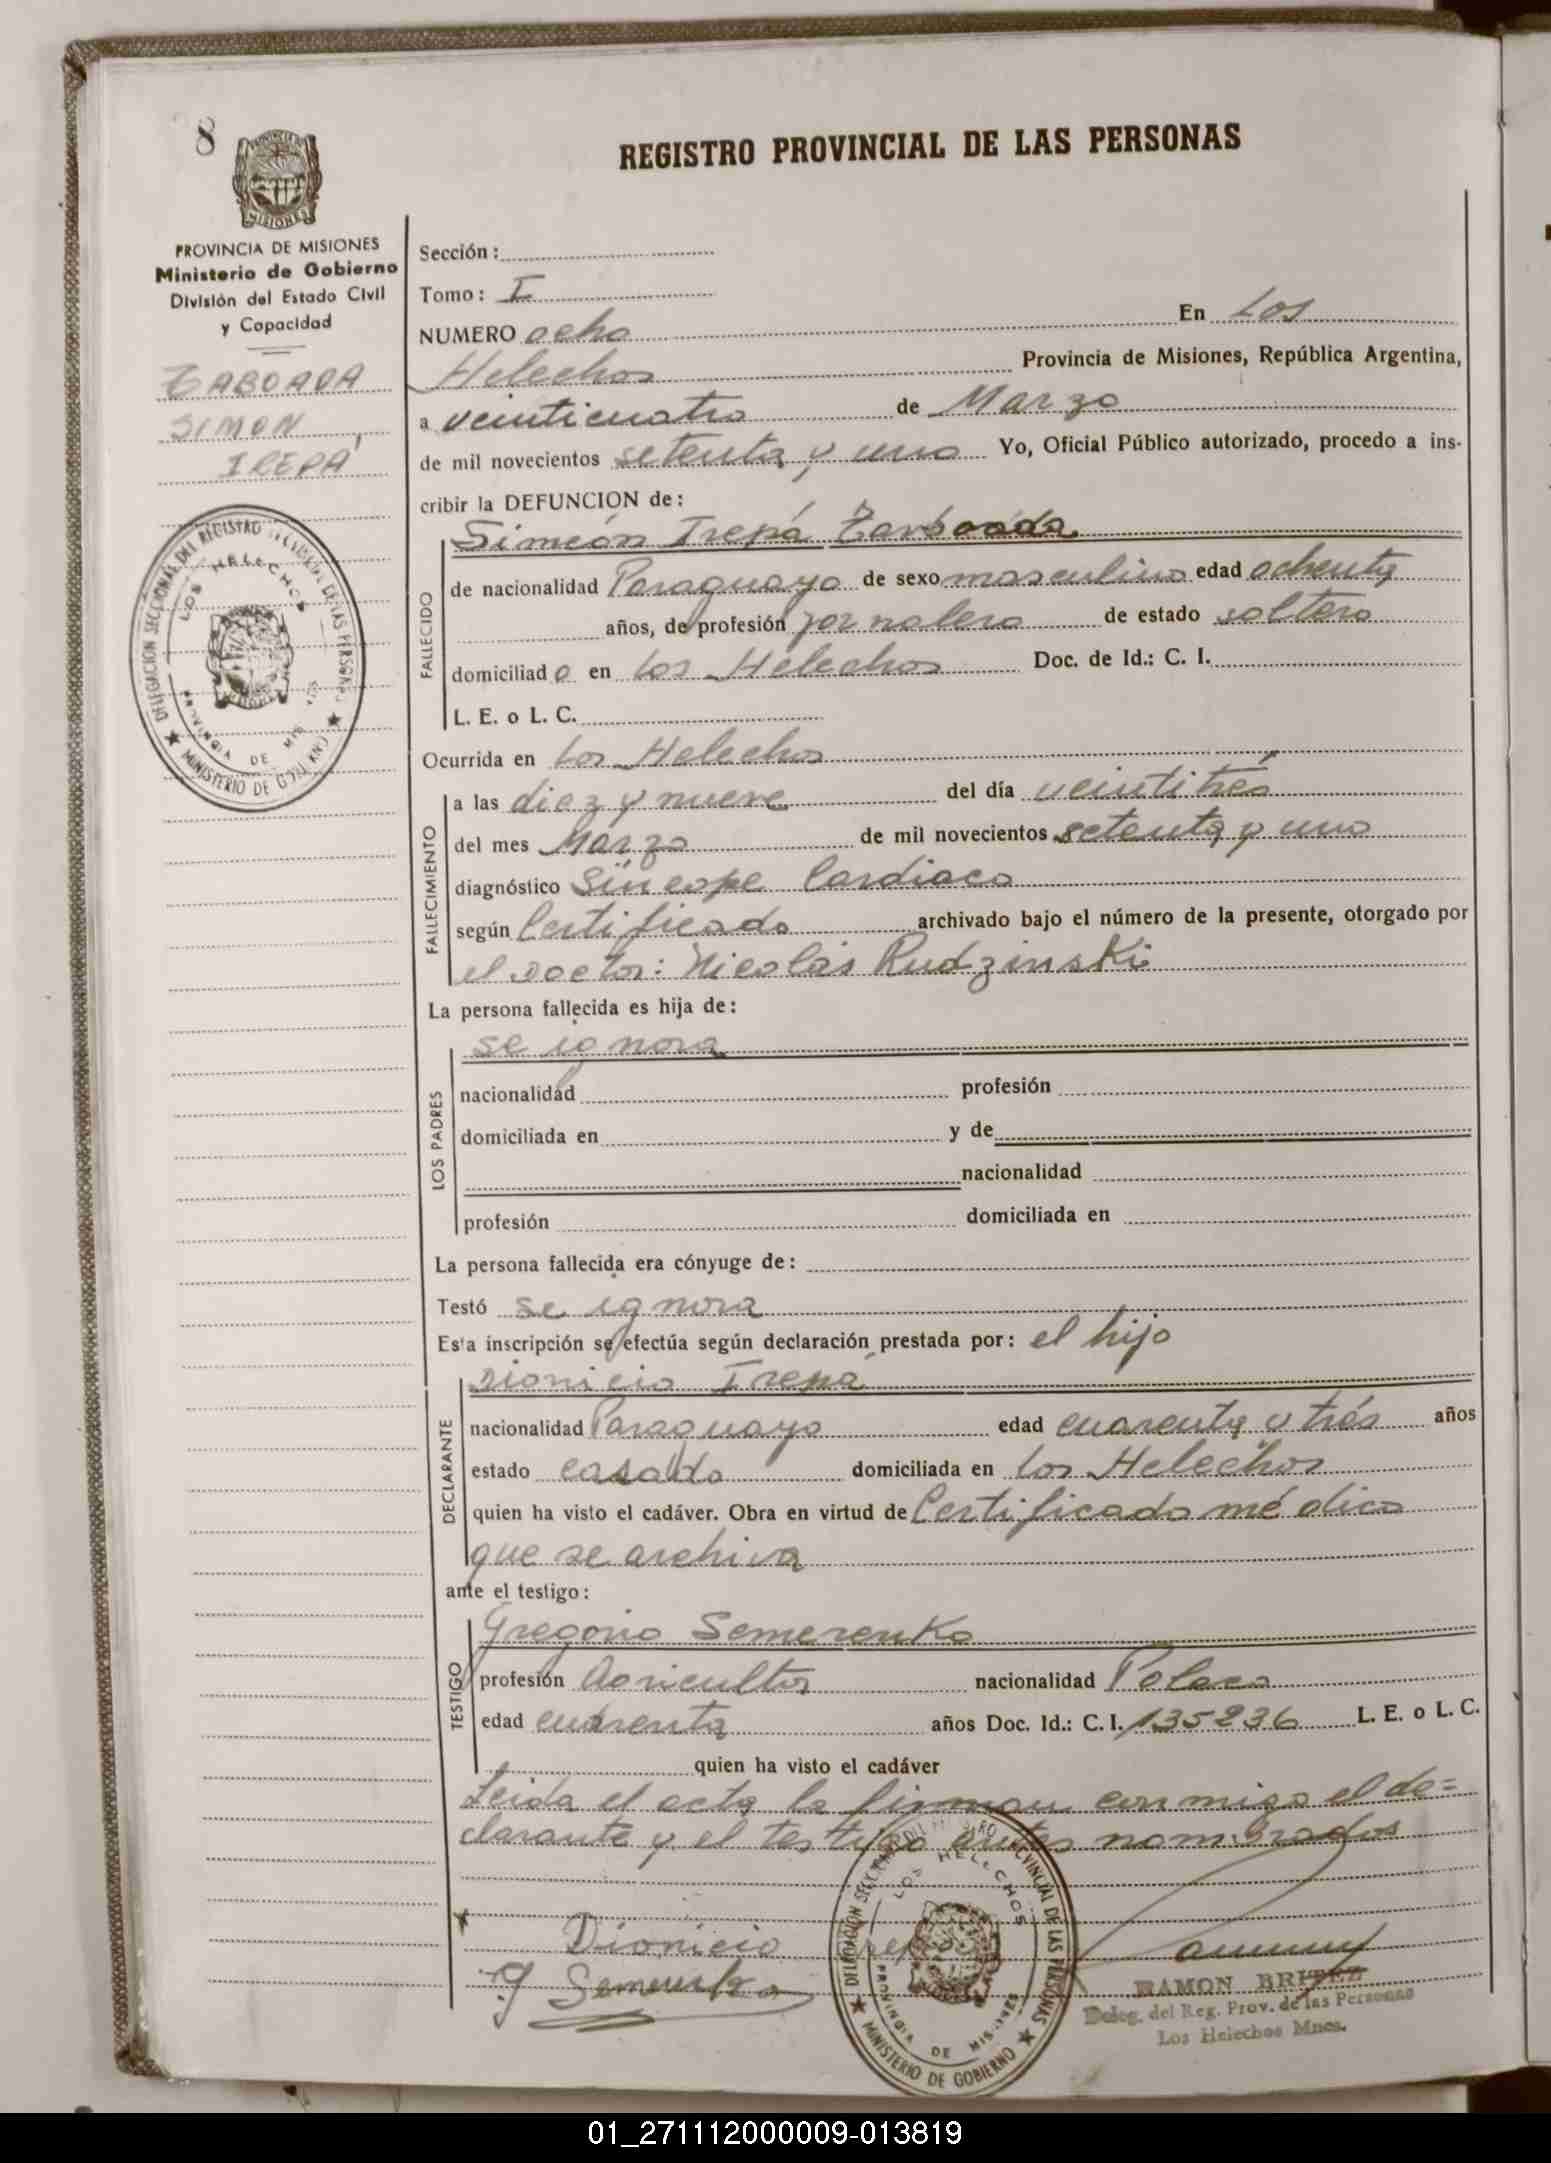 8
REGISTRO PROVINCIAL DE LAS PERSONAS
MISIONES
PROVINCIA DE MISIONES
Ministerio de Gobierno
División del Estado Civil
y Capacidad
TABOADA
SIMON
IREPÁ
DELEGACION SECCIONAL DEL REGISTRO PROVINCIAL DE LAS PERSONAS
LOS HELECHOS
PROVINCIA DE MISIONES
MINISTERIO DE GOBIERNO
Sección:
Tomo: I
NUMERO ocho En Los
Helechos Provincia de Misiones, República Argentina,
a veinticuatro de Marzo
de mil novecientos setenta y uno Yo, Oficial Público autorizado, procedo a ins-
cribir la DEFUNCION de:
FALLECIDO
Simeón Irepá Taboada
de nacionalidad Paraguayo de sexo masculino edad ochenta
años, de profesión jornalero de estado soltero
domiciliado en Los Helechos Doc. de Id.: C. I.
L. E. o L. C.
Ocurrida en Los Helechos
FALLECIMIENTO
a las diez y nueve del día veintitrés
del mes Marzo de mil novecientos setenta y uno
diagnóstico Síncope Cardiaco
según Certificado archivado bajo el número de la presente, otorgado por
el Doctor: Nicolás Rudzinski
La persona fallecida es hija de:
LOS PADRES
se ignora
nacionalidad profesión
domiciliada en y de
nacionalidad
profesión domiciliada en
La persona fallecida era cónyuge de:
Testó se ignora
Esta inscripción se efectúa según declaración prestada por: el hijo
DECLARANTE
Dionicio Irepá
nacionalidad Paraguayo edad cuarenta y trés años
estado casado domiciliada en Los Helechos
quien ha visto el cadáver. Obra en virtud de Certificado médico
que se archiva
ante el testigo:
TESTIGO
Gregorio Semerenko
profesión Agricultor nacionalidad Polaco
edad cuarenta años Doc. Id.: C. I. 135236 L. E. o L. C.
quien ha visto el cadáver
Leida el acta la firman conmigo el de=
clarante y el testigo antes nombrados
Dionicio Irepa
G Semerenko
DELEGACION SECCIONAL DEL REGISTRO PROVINCIAL DE LAS PERSONAS
LOS HELECHOS
PROVINCIA DE MISIONES
MINISTERIO DE GOBIERNO
RAMON BRITEZ
Deleg. del Reg. Prov. de las Personas
Los Helechos Mnes.
01_271112000009-013819